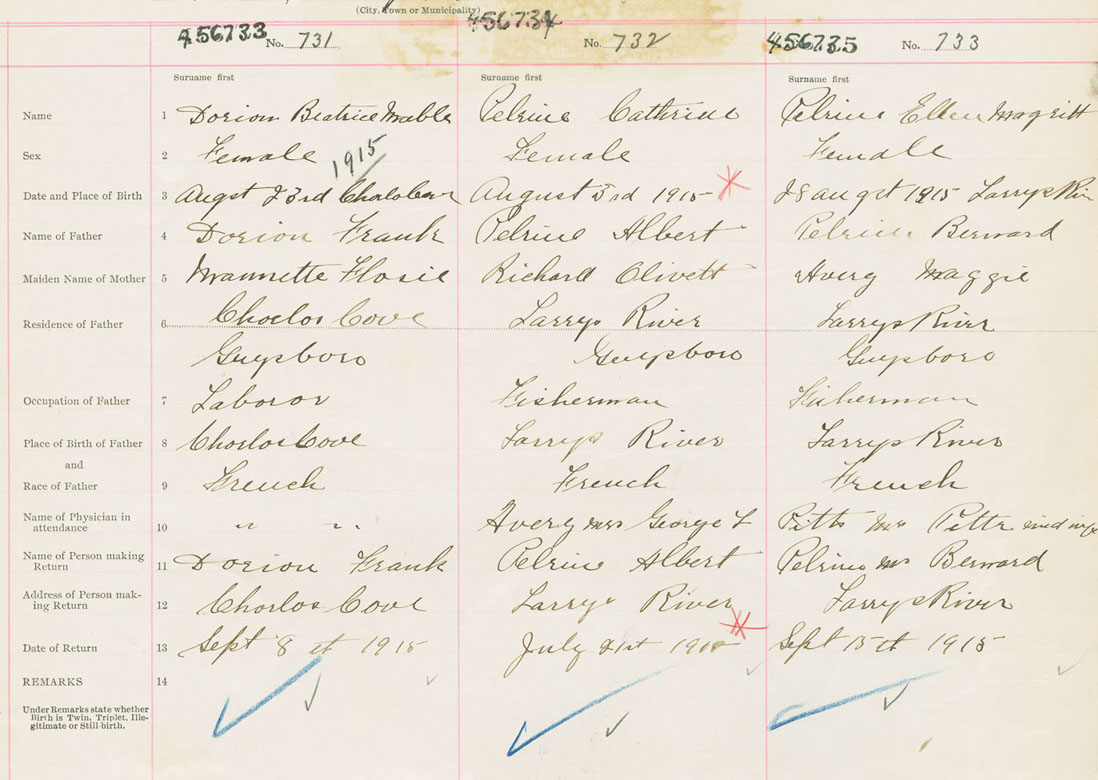 (City, Town or Municipality)
456733 No. 731 456734 No. 732 456735 No. 733
Surname first Surname first Surname first
Name 1 Dorion Beatrice Mable Pelrine Cathrine Pelrine Ellen Magritt
Sex 2 Female Female Female
1915
Date and Place of Birth 3 Augst 23rd August 3rd 1915 28 augst 1915 Larrys Riv
Name of Father 4 Dorion Frank Pelrine Albert Pelrine Bernard
Maiden Name of Mother 5 Mannette Flosie Richard Olivett Avery Maggie
Residence of Father 6 Choelos Cove Larrys River Larrys River
Guysboro Guysboro Guysboro
Occupation of Father 7 Laboror Fisherman Fisherman
Place of Birth of Father 8 Choelos Cove Larrys River Larrys River
and
Race of Father 9 French French French
Name of Physician in
attendance 10 " " Avery mrs George L Pitts Mrs midwife
Name of Person making
Return 11 Dorion Frank Pelrine Albert Pelrine Mrs Bernard
Address of Person mak-
ing Return 12 Choelos Cove Larrys River Larrys River
Date of Return 13 Sept 8 et 1915 July 21st Sept 15 et 1915
REMARKS 14
Under Remarks state whether
Birth is Twin, Triplet, Ille-
gitimate or Still-birth.